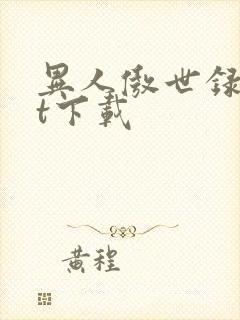 異人傲世録
t下載
黄程